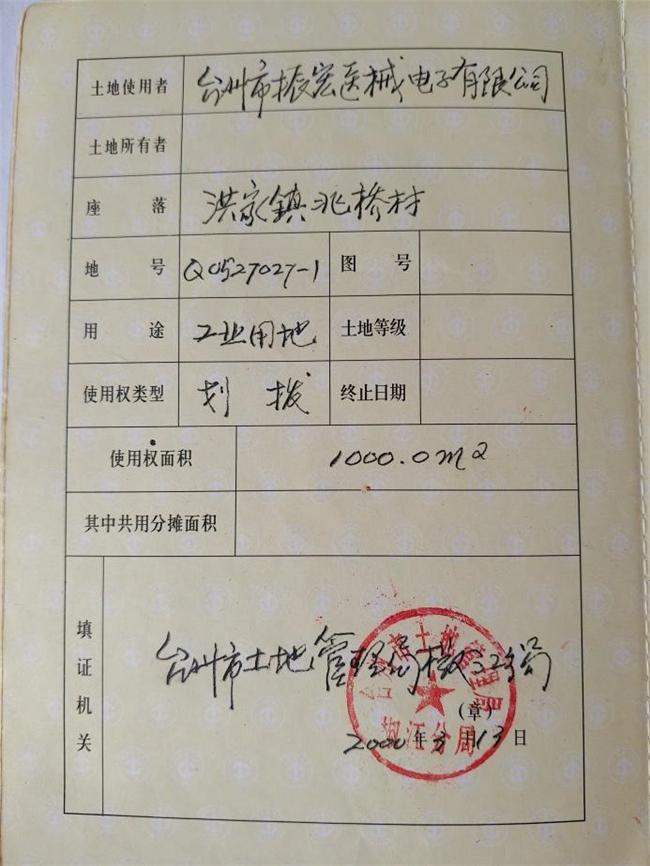 土地使用者 台州市振宏医械电子有限公司
土地所有者
座落 洪家鎮兆桥村
地号 Q0527027-1 图号
用途 工业用地 土地等级
使用权类型 划拨 终止日期
使用权面积 1000.0m2
其中共用分摊面积
填证机关
台州市土地管理局椒江分局
土地管理局
椒江分局
(章)
2000年3月13日